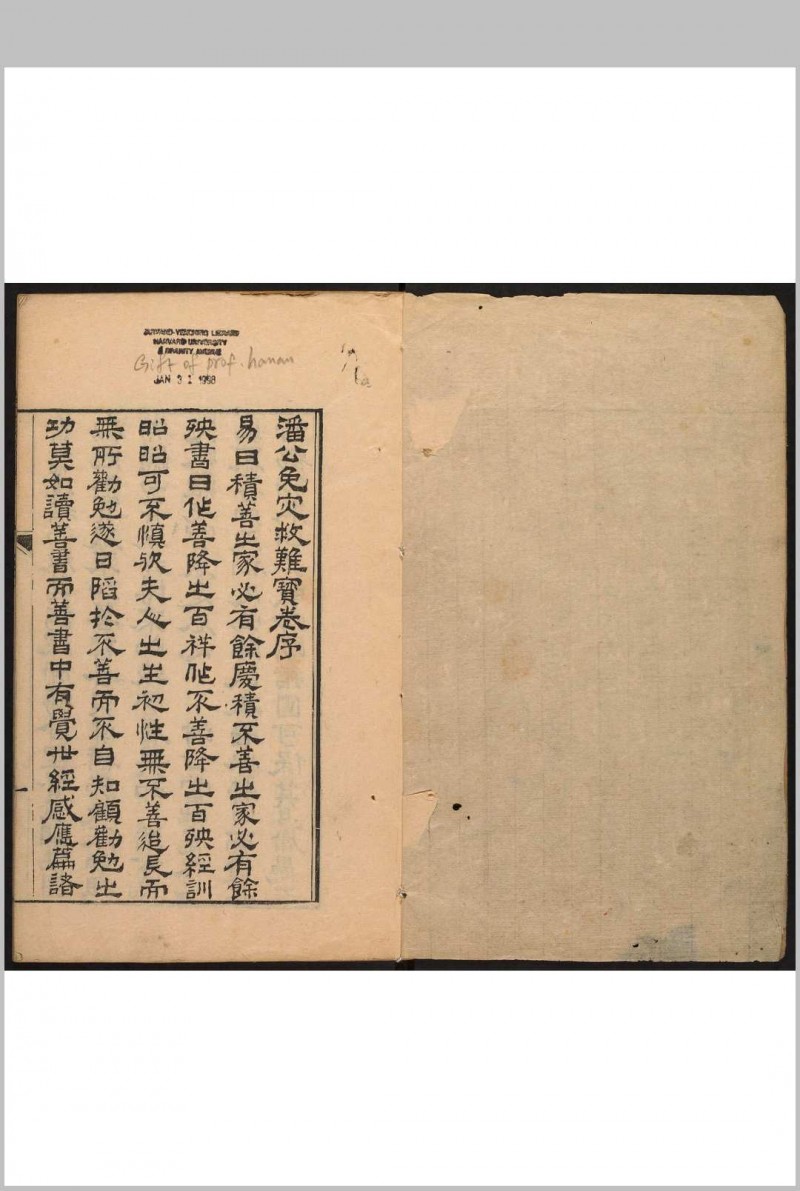 HARVARD-YENCHING LIBRARY
HARVARD UNIVERSITY
2 DIVINITY AVENUE
Gift of prof. hanan
JAN 31 1998
潘公免灾救難寶卷序
易曰積善之家必有餘慶積不善之家必有餘
殃書曰作善降之百祥作不善降之百殃經訓
昭昭可不慎欤夫人之生初性無不善迨長而
無所勸勉遂日陷於不善而不自知顧勸勉之
功莫如讀善書而善書中有覺世經感應篇諸
一